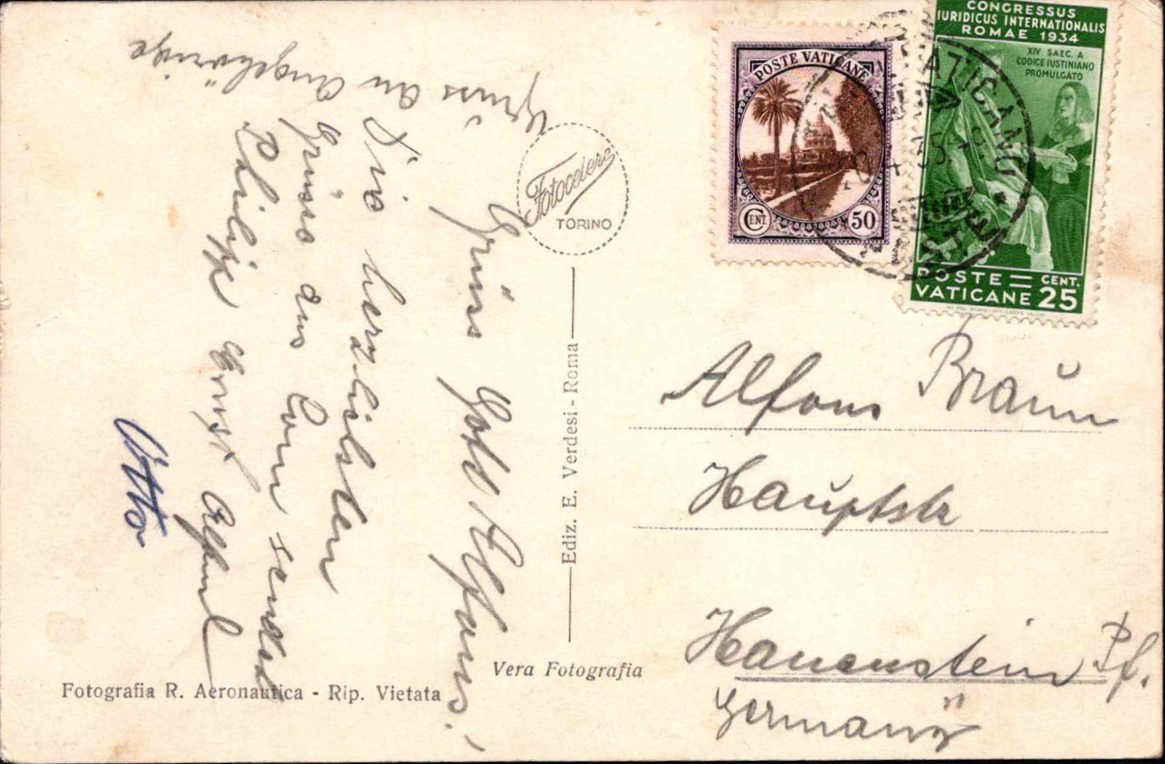 Gruss an Angehörige
Grüss Gott Alfons!
Die herzlichsten
Grüsse aus Rom sendet
Philipp Ernst
Otto
Fotocelere
TORINO
Ediz. E. Verdesi - Roma
Vera Fotografia
Fotografia R. Aeronautica - Rip. Vietata
POSTE VATICANE
CENT. 50
CONGRESSUS
IURIDICUS INTERNATIONALIS
ROMAE 1934
XIV SAEC. A
CODICE IUSTINIANO
PROMULGATO
POSTE = CENT.
VATICANE 25
VATICANO
POSTE
Alfons Braun
Hauptstr
Hauenstein Pf.
Germany